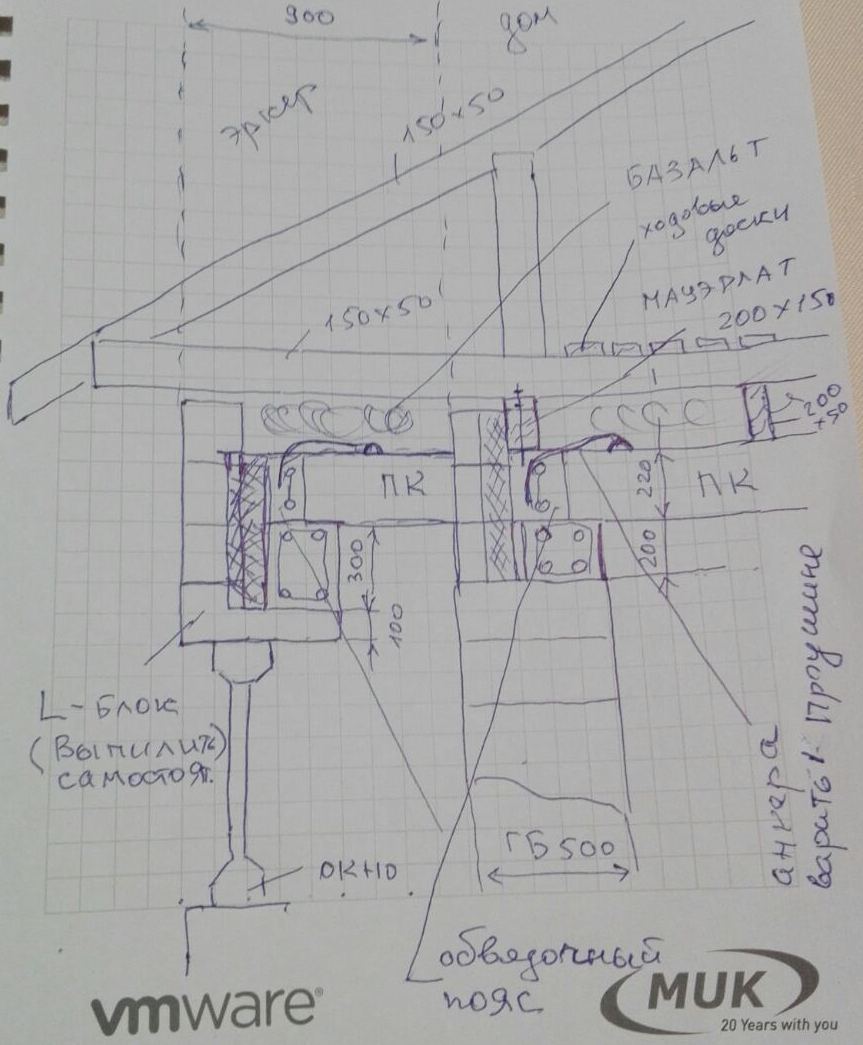 900
дом
эркер
150x50
БАЗАЛЬТ
ходовые
доски
МАУЭРЛАТ
200x150
150x50
200
x50
ПК
220
ПК
300
200
100
L-БЛОК
(ВЫПИЛИТЬ)
самостоят.
ОКНО
ГБ 500
анкера
варить к проушине
обвязочный
пояс
vmware®
MUK
20 Years with you